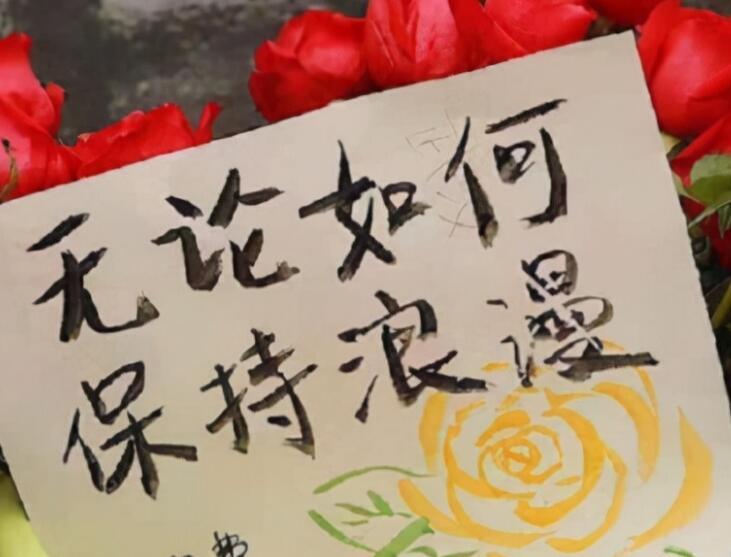 无论如何
保持浪漫
费